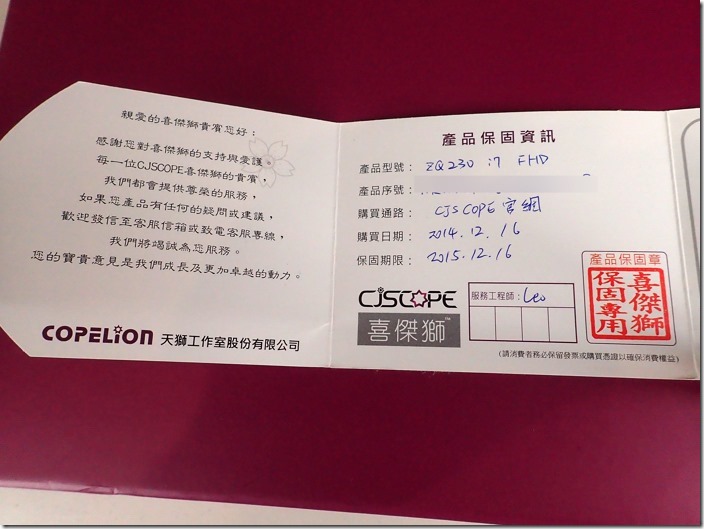 親愛的喜傑獅貴賓您好：
感謝您對喜傑獅的支持與愛護。
每一位CJSCOPE喜傑獅的貴賓，
我們都會提供尊榮的服務，
如果您產品有任何的疑問或建議，
歡迎發信至客服信箱或致電客服專線，
我們將竭誠為您服務。
您的寶貴意見是我們成長及更加卓越的動力。
COPELION 天獅工作室股份有限公司
產品保固資訊
產品型號： ZQ230 i7 FHD
產品序號：
購買通路： CJSCOPE官網
購買日期： 2014.12.16
保固期限： 2015.12.16
CJSCOPE
喜傑獅™
服務工程師： Leo
產品保固章
喜傑獅
保固專用
(請消費者務必保留發票或購買憑證以確保消費權益)